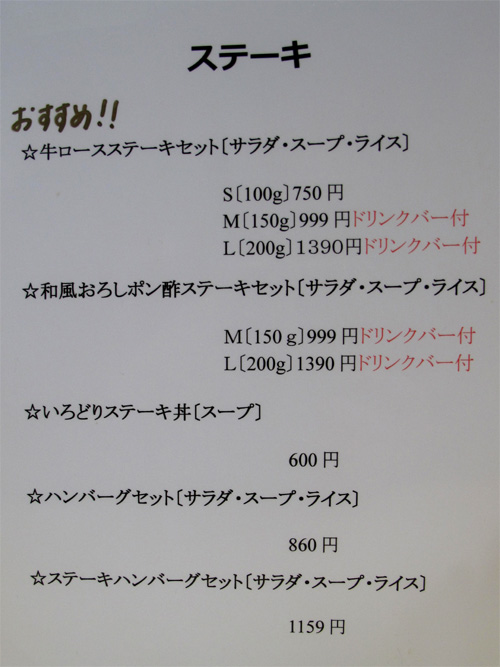 ステーキ
おすすめ!!
☆牛ロースステーキセット〔サラダ・スープ・ライス〕
S〔100g〕750円
M〔150g〕999円ドリンクバー付
L〔200g〕1390円ドリンクバー付
☆和風おろしポン酢ステーキセット〔サラダ・スープ・ライス〕
M〔150g〕999円ドリンクバー付
L〔200g〕1390円ドリンクバー付
☆いろどりステーキ丼〔スープ〕
600円
☆ハンバーグセット〔サラダ・スープ・ライス〕
860円
☆ステーキハンバーグセット〔サラダ・スープ・ライス〕
1159円